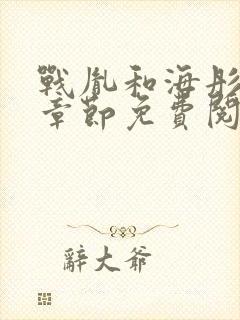 戰胤和海彤
章節免費閱
辭大爺